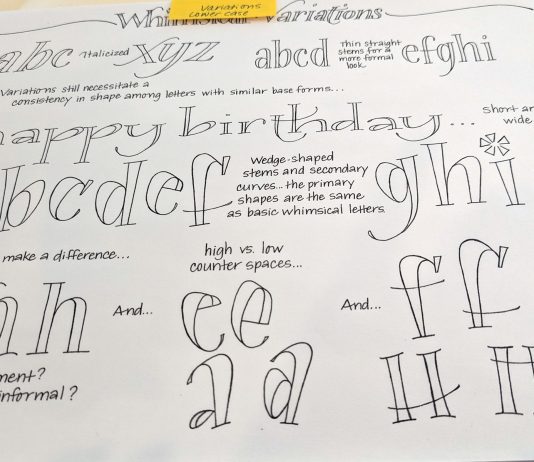 Variations
Lower case
Whimsical Variations
abc Italicized xyz abcd Thin straight
stems for a
more formal
look efghi
Variations still necessitate a
consistency in shape among letters with similar base forms...
happy birthday... short
wide
bcdef Wedge-shaped
stems and secondary
curves... the primary
shapes are the same
as basic whimsical letters. ghi
make a difference... high vs. low
counter spaces...
h h And... e e And... f f
a a H H
informal?